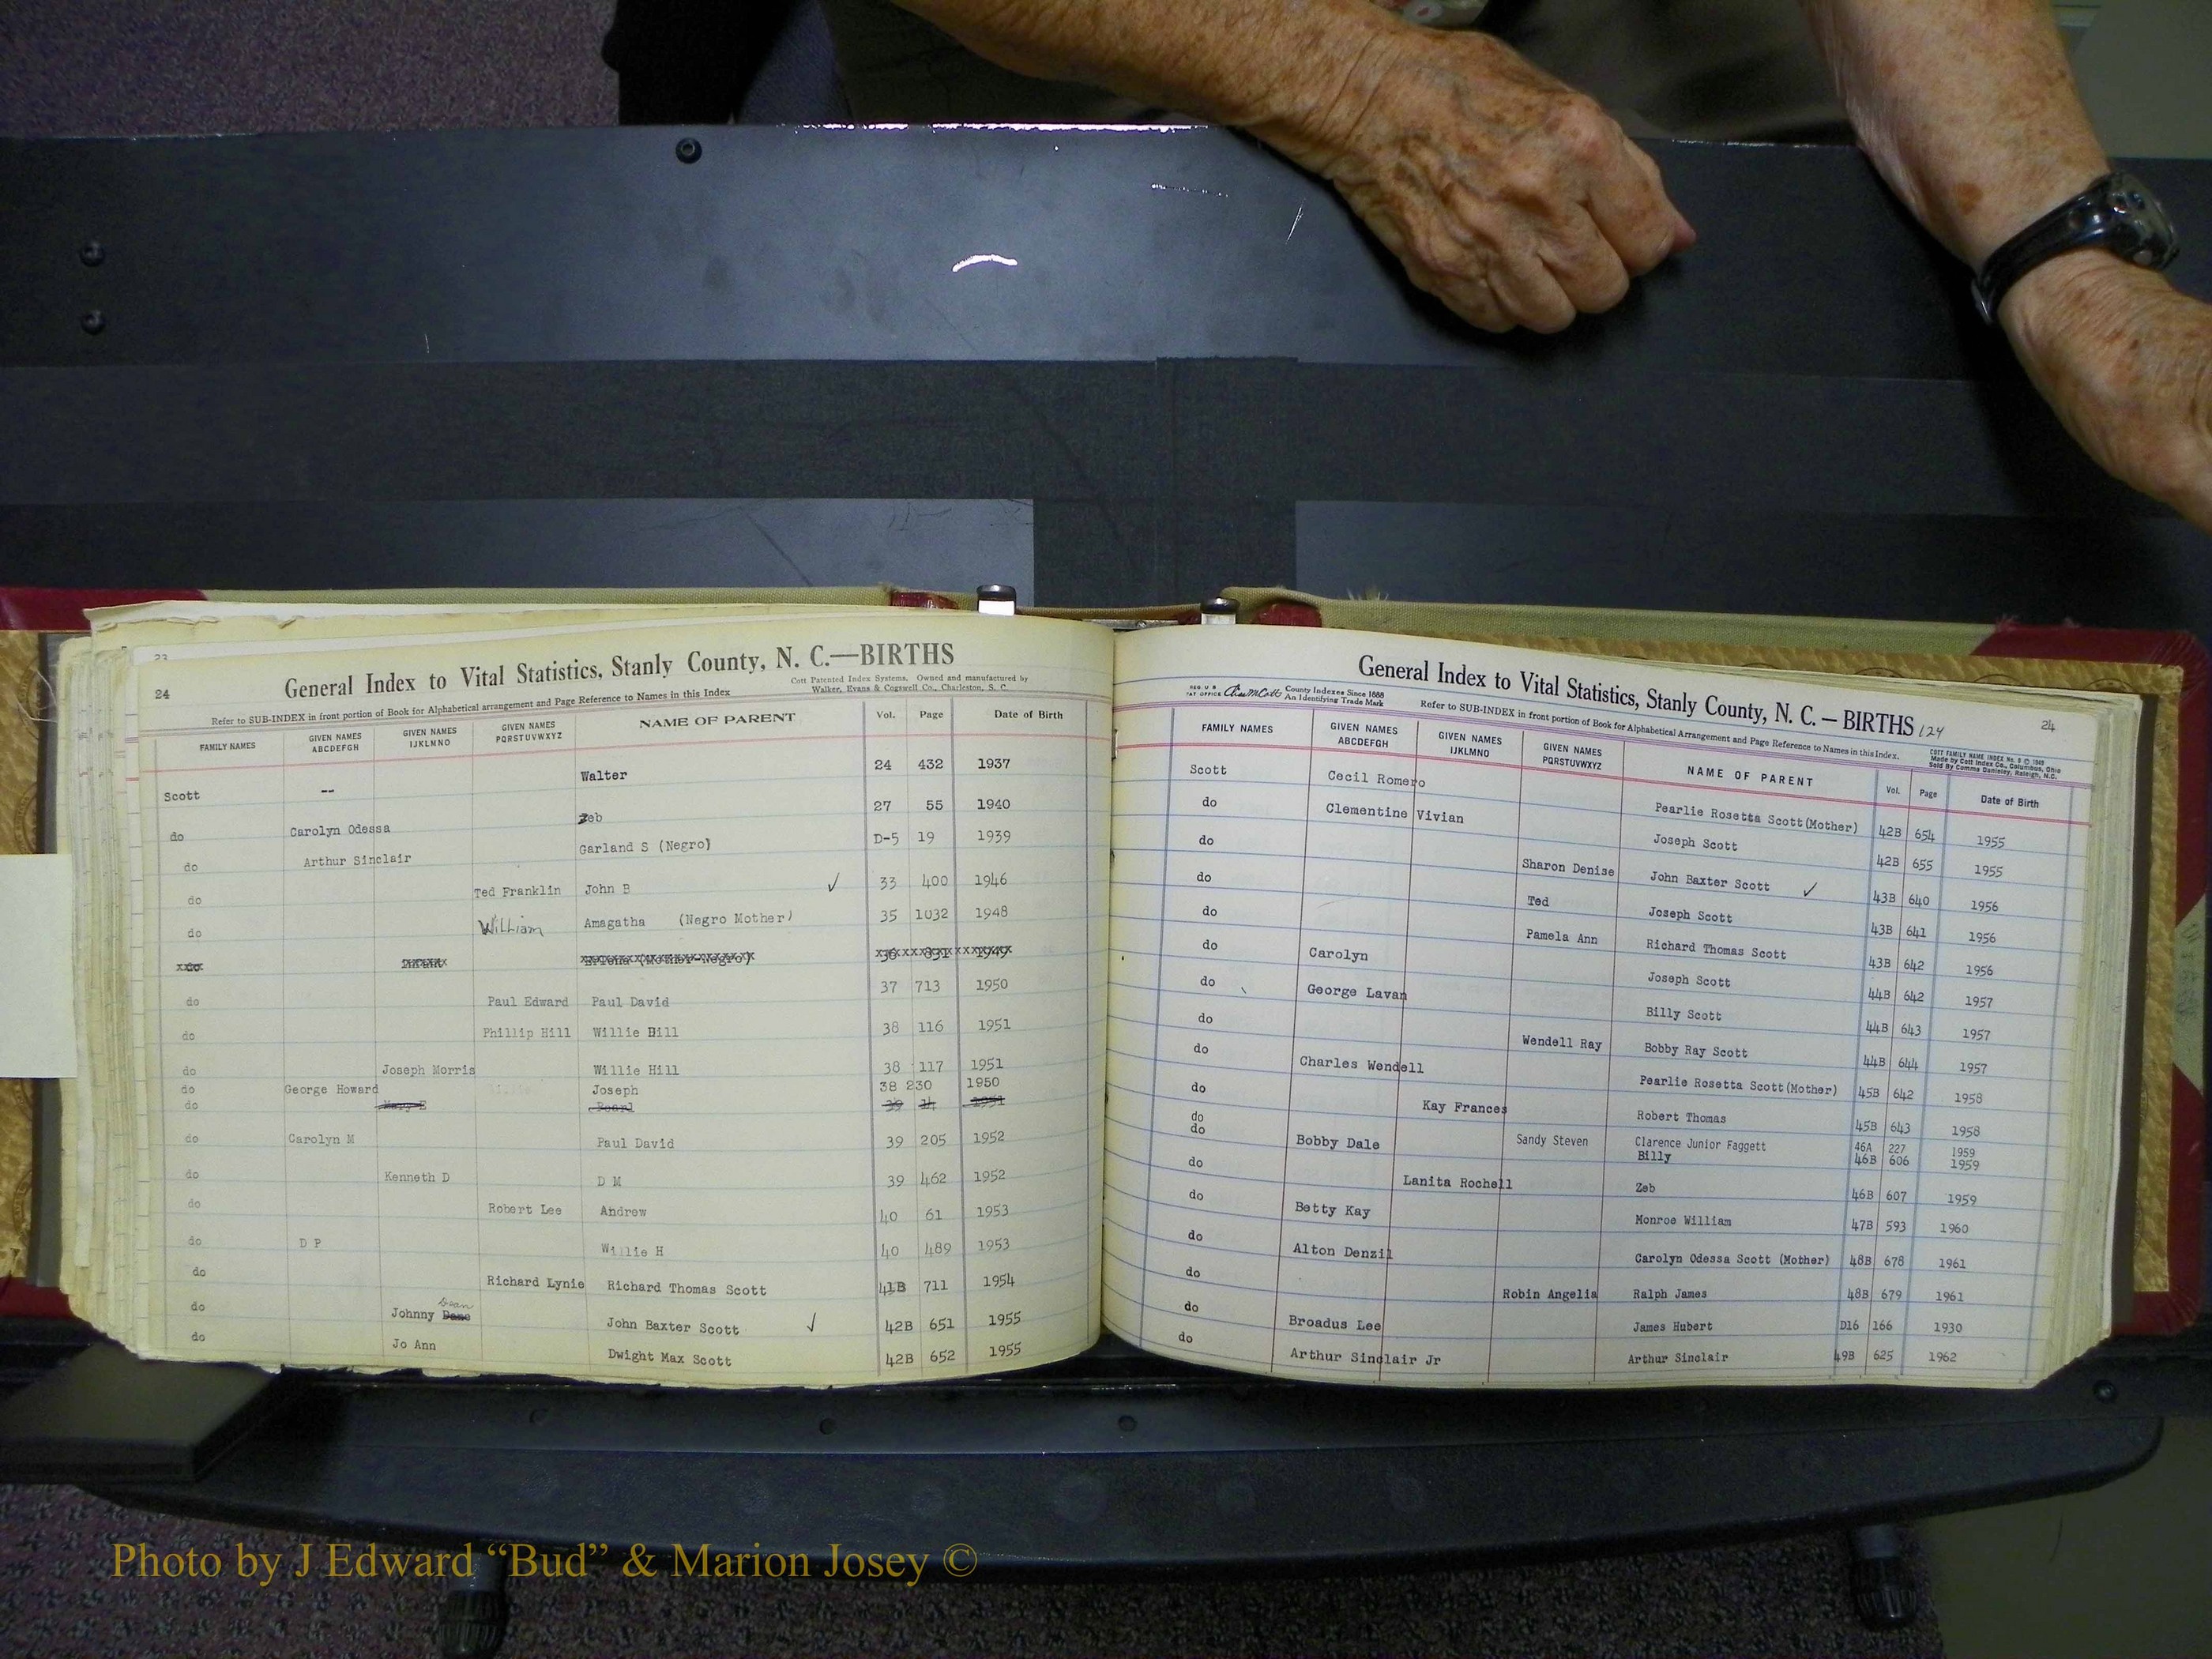 23
24
General Index to Vital Statistics, Stanly County, N. C.—BIRTHS
Cott Patented Index Systems, Owned and manufactured by
Walker, Evans & Cogswell Co., Charleston, S. C.
Refer to SUB-INDEX in front portion of Book for Alphabetical arrangement and Page Reference to Names in this Index
FAMILY NAMES GIVEN NAMES ABCDEFGH GIVEN NAMES IJKLMNO GIVEN NAMES PQRSTUVWXYZ NAME OF PARENT Vol. Page Date of Birth
Scott -- Walter 24 432 1937
do Carolyn Odessa Zeb 27 55 1940
do Arthur Sinclair Garland S (Negro) D-5 19 1939
do Ted Franklin John B ✓ 33 400 1946
do William Amagatha (Negro Mother) 35 1032 1948
do Infant (Mother-Negro) 36 831 1949
do Paul Edward Paul David 37 713 1950
do Phillip Hill Willie Hill 38 116 1951
do Joseph Morris Willie Hill 38 117 1951
do George Howard Joseph 38 230 1950
do Mary E Pearl 39 14 1951
do Carolyn M Paul David 39 205 1952
do Kenneth D D M 39 462 1952
do Robert Lee Andrew 40 61 1953
do D P Willie H 40 489 1953
do Richard Lynie Richard Thomas Scott 41B 711 1954
do Johnny Dane Dean John Baxter Scott ✓ 42B 651 1955
do Jo Ann Dwight Max Scott 42B 652 1955
General Index to Vital Statistics, Stanly County, N. C. — BIRTHS 124
24
REG. U S PAT OFFICE County Indexes Since 1888
An Identifying Trade Mark
Refer to SUB-INDEX in front portion of Book for Alphabetical Arrangement and Page Reference to Names in this Index.
COTT FAMILY NAME INDEX No. 8 © 1949
Made by Cott Index Co., Columbus, Ohio
Sold By Comms Danieley, Raleigh, N.C.
FAMILY NAMES GIVEN NAMES ABCDEFGH GIVEN NAMES IJKLMNO GIVEN NAMES PQRSTUVWXYZ NAME OF PARENT Vol. Page Date of Birth
Scott Cecil Romero Pearlie Rosetta Scott(Mother) 42B 654 1955
do Clementine Vivian Joseph Scott 42B 655 1955
do Sharon Denise John Baxter Scott ✓ 43B 640 1956
do Ted Joseph Scott 43B 641 1956
do Pamela Ann Richard Thomas Scott 43B 642 1956
do Carolyn Joseph Scott 44B 642 1957
do George Lavan Billy Scott 44B 643 1957
do Wendell Ray Bobby Ray Scott 44B 644 1957
do Charles Wendell Pearlie Rosetta Scott(Mother) 45B 642 1958
do Kay Frances Robert Thomas 45B 643 1958
do Sandy Steven Clarence Junior Faggett 46A 227 1959
do Bobby Dale Billy 46B 606 1959
do Lanita Rochell Zeb 46B 607 1959
do Betty Kay Monroe William 47B 593 1960
do Alton Denzil Carolyn Odessa Scott (Mother) 48B 678 1961
do Robin Angelia Ralph James 48B 679 1961
do Broadus Lee James Hubert D16 166 1930
do Arthur Sinclair Jr Arthur Sinclair 49B 625 1962
Photo by J Edward “Bud” & Marion Josey ©